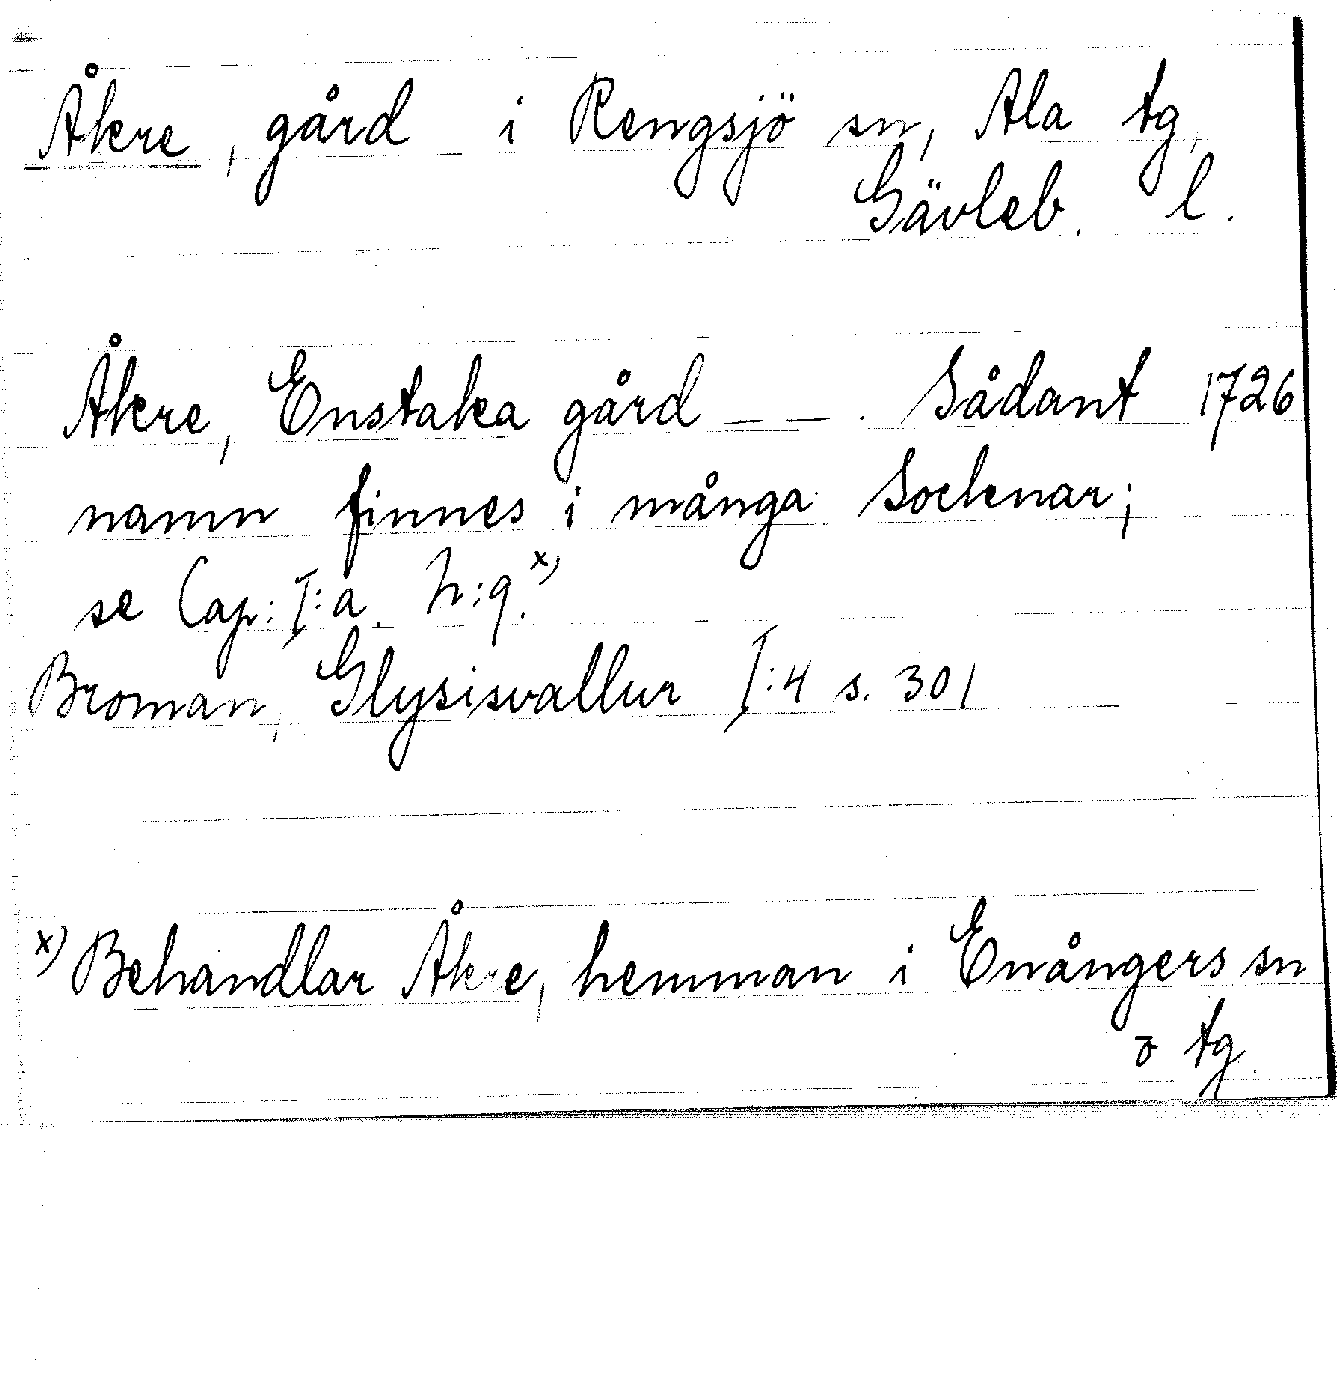 Åkre, gård i Rengsjö sn, Ala tg,
Gävleb. l.
Åkre, Enstaka gård — — . Sådant 1726
namn finnes i många Socknar;
se Cap: I:a. h:q.x)
Broman, Glysisvallur I:4 s. 301
x) Behandlar Åkre, hemman i Enångers sn
o tg.